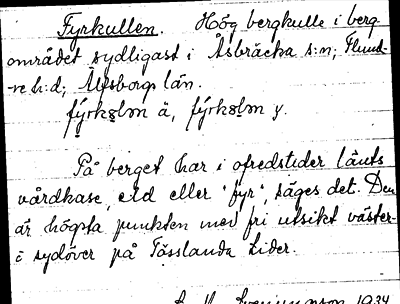 Fyrkullen. Hög bergkulle i berg-
området sydligast i Åsbräcka s:n, Flund-
re h:d, Älvsborgs län.
fýrkəlɔn ä, fýrkəlɔn y.
På berget har i ofredstider länts
vårdkase, eld eller "fyr", säges det. Den
är högsta punkten med fri utsikt väster-
i sydöver på Tösslanda tider.
1934